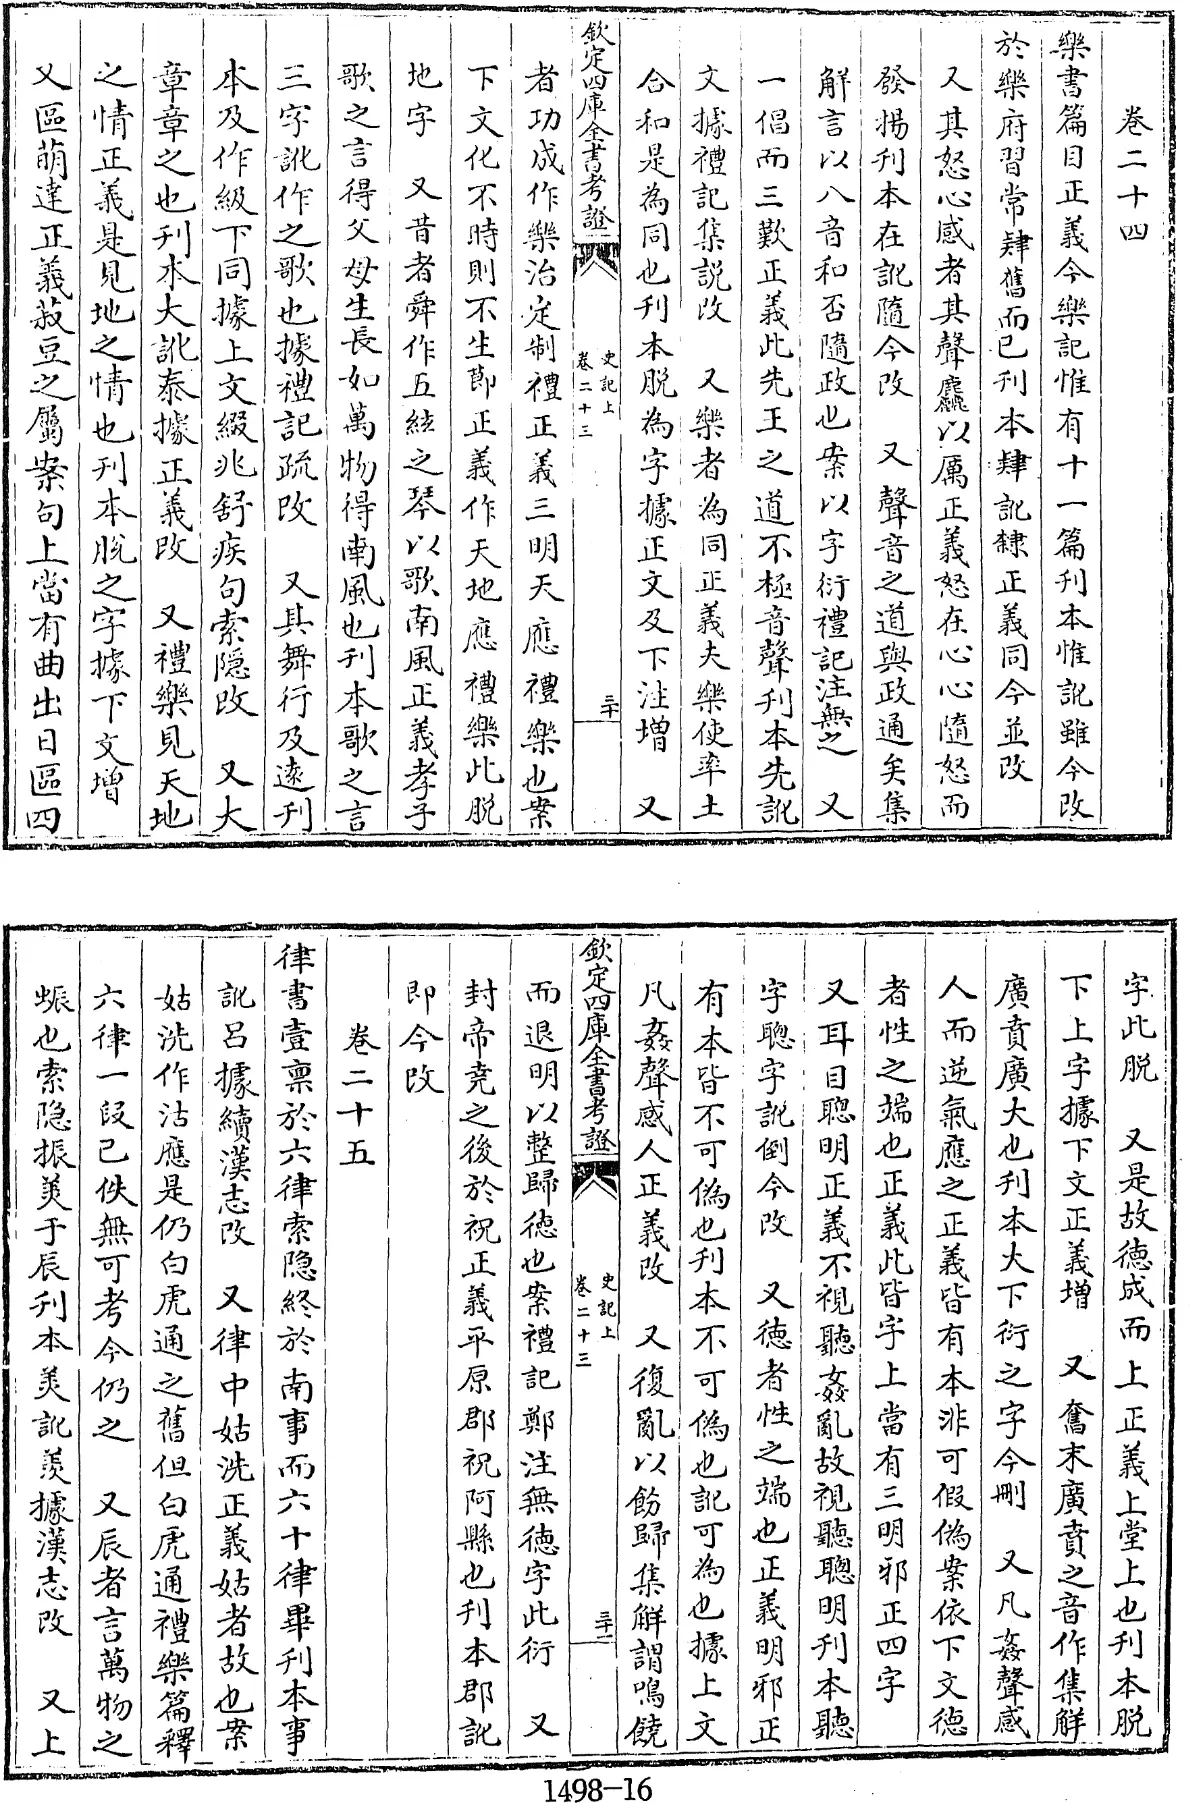 卷二十四
樂書篇目正義今樂記惟有十一篇刊本惟訛雖今改
於樂府習常肄舊而已刊本肄訛隸正義同今並改
又其怒心感者其聲麤以厲正義怒在心心隨怒而
發揚刊本在訛隨今改　又聲音之道與政通矣集
解言以八音和否隨政也案以字衍禮記注無之　又
一倡而三歎正義此先王之道不極音聲刊本先訛
文據禮記集説改　又樂者為同正義夫樂使率土
合和是為同也刊本脱為字據正文及下注増　又
欽定四庫全書考證
史記上
卷二十三
三十
者功成作樂治定制禮正義三明天應禮樂也案
下文化不時則不生節正義作天地應禮樂此脱
地字　又昔者舜作五絃之琴以歌南風正義孝子
歌之言得父母生長如萬物得南風也刊本歌之言
三字訛作之歌也據禮記疏改　又其舞行及遠刊
本及作級下同據上文綴兆舒疾句索隱改　又大
章章之也刊本大訛泰據正義改　又禮樂見天地
之情正義是見地之情也刊本脱之字據下文増
又區萌達正義菽豆之屬案句上當有曲出曰區四
字此脱　又是故德成而上正義上堂上也刊本脱
下上字據下文正義増　又奮末廣賁之音作集解
廣賁廣大也刊本大下衍之字今刪　又凡姦聲感
人而逆氣應之正義皆有本非可假偽案依下文德
者性之端也正義此皆字上當有三明邪正四字
又耳目聰明正義不視聽姦亂故視聽聰明刊本聽
字聰字訛倒今改　又德者性之端也正義明邪正
有本皆不可偽也刊本不可偽也訛可為也據上文
凡姦聲感人正義改　又復亂以飭歸集解謂鳴鐃
欽定四庫全書考證
史記上
卷二十三
三十一
而退明以整歸德也案禮記鄭注無德字此衍　又
封帝堯之後於祝正義平原郡祝阿縣也刊本郡訛
即今改
卷二十五
律書壹稟於六律索隱終於南事而六十律畢刊本事
訛呂據續漢志改　又律中姑洗正義姑者故也案
姑洗作沽應是仍白虎通之舊但白虎通禮樂篇釋
六律一段已佚無可考今仍之　又辰者言萬物之
蜄也索隱振羙于辰刊本羙訛羨據漢志改　又上
1498-16